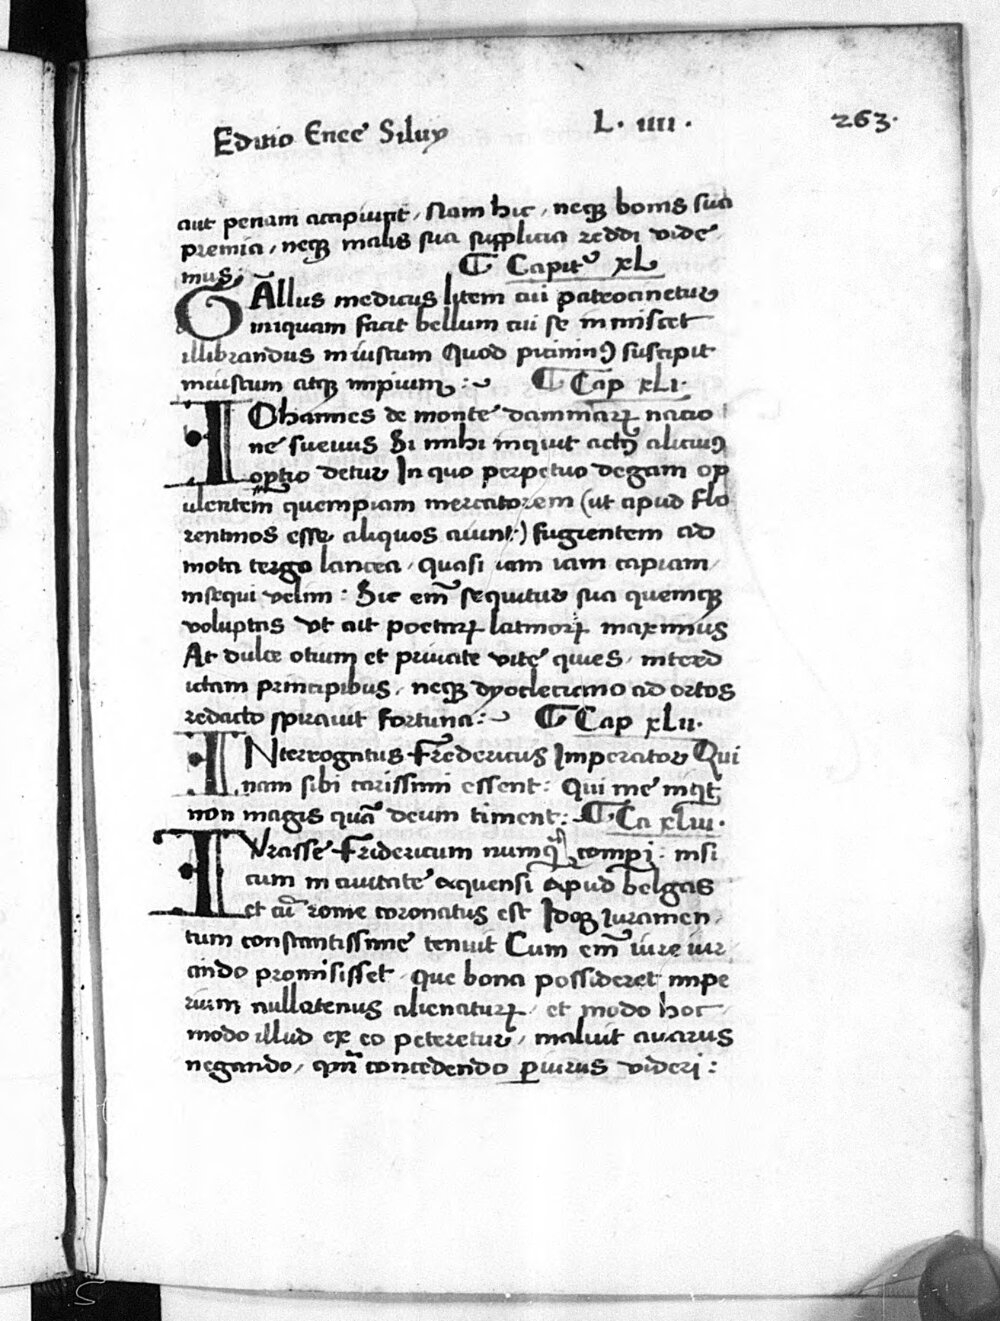 Editio Enee Siluy L. iiii. 263.
aut penam accipiunt, Nam hic, neqꝫ bonis sua
premia, neqꝫ malis sua supplicia reddi vide
mus, ¶ Capitᵘ xL
GAllus medicus litem cui patrocinetur
iniquam facit bellum cui se inmiscet
illibrandus iniustum Quod piccininꝰ suscipit
iniustum atqꝫ impium : ¶ Cap xLi.
IOhannes de monte dammarꝝ nacio
ne sueuus Si mihi inquit actꝰ alicuiꝰ
optio detur In quo perpetuo degam op
ulentem quempiam mercatorem (ut apud flo
rentinos esse aliquos aiunt:) fugientem ad
mota tergo lancea, quasi iam iam capiam,
insequi velim : Sic em̄ sequitur sua quemqꝫ
voluptas vt ait poetarꝝ latinorꝝ maximus
At dulce otium et priuate vite quies, interd
ictam principibus, neqꝫ dyocleciano ad ortos
redacto spirauit fortuna : ¶ Cap xLii.
INterrogatus Fredericus Imperator Qui
nam sibi carissimi essent : Qui me inqͥt
non magis quā deum timent : ¶ Ca xLiii.
IVrasse Fridericum compi : nisi
cum in ciuitate aquensi apud belgas
et cū rome coronatus est Idqꝫ iuramen
tum constantissime tenuit Cum em̄ iure iur
ando promisisset, que bona possideret impe
rium nullatenus alienaturꝝ, et modo hoc,
modo illud ex eo peteretur, maluit auarus
negando, qm̄ concedendo ꝑiurus videri :